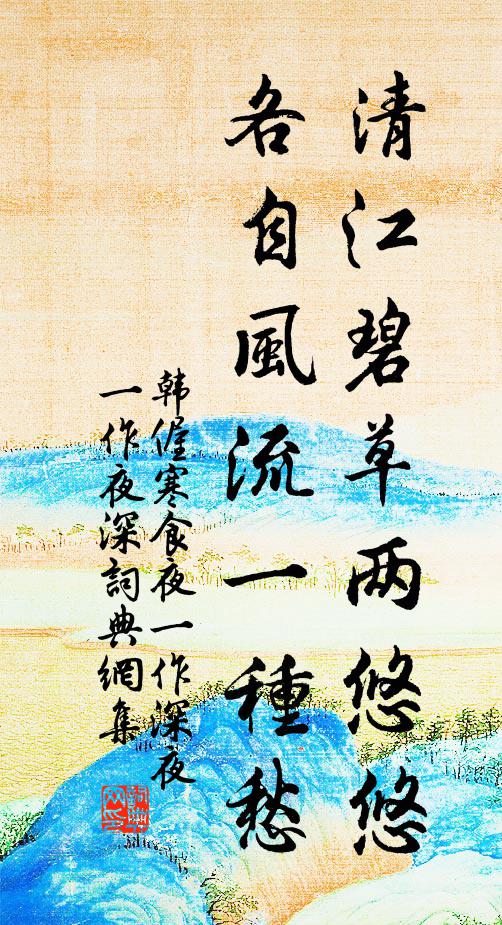 清江碧草两悠悠
各自風流一種愁
韩偓寒食夜一作深夜
一作夜深詞典網集